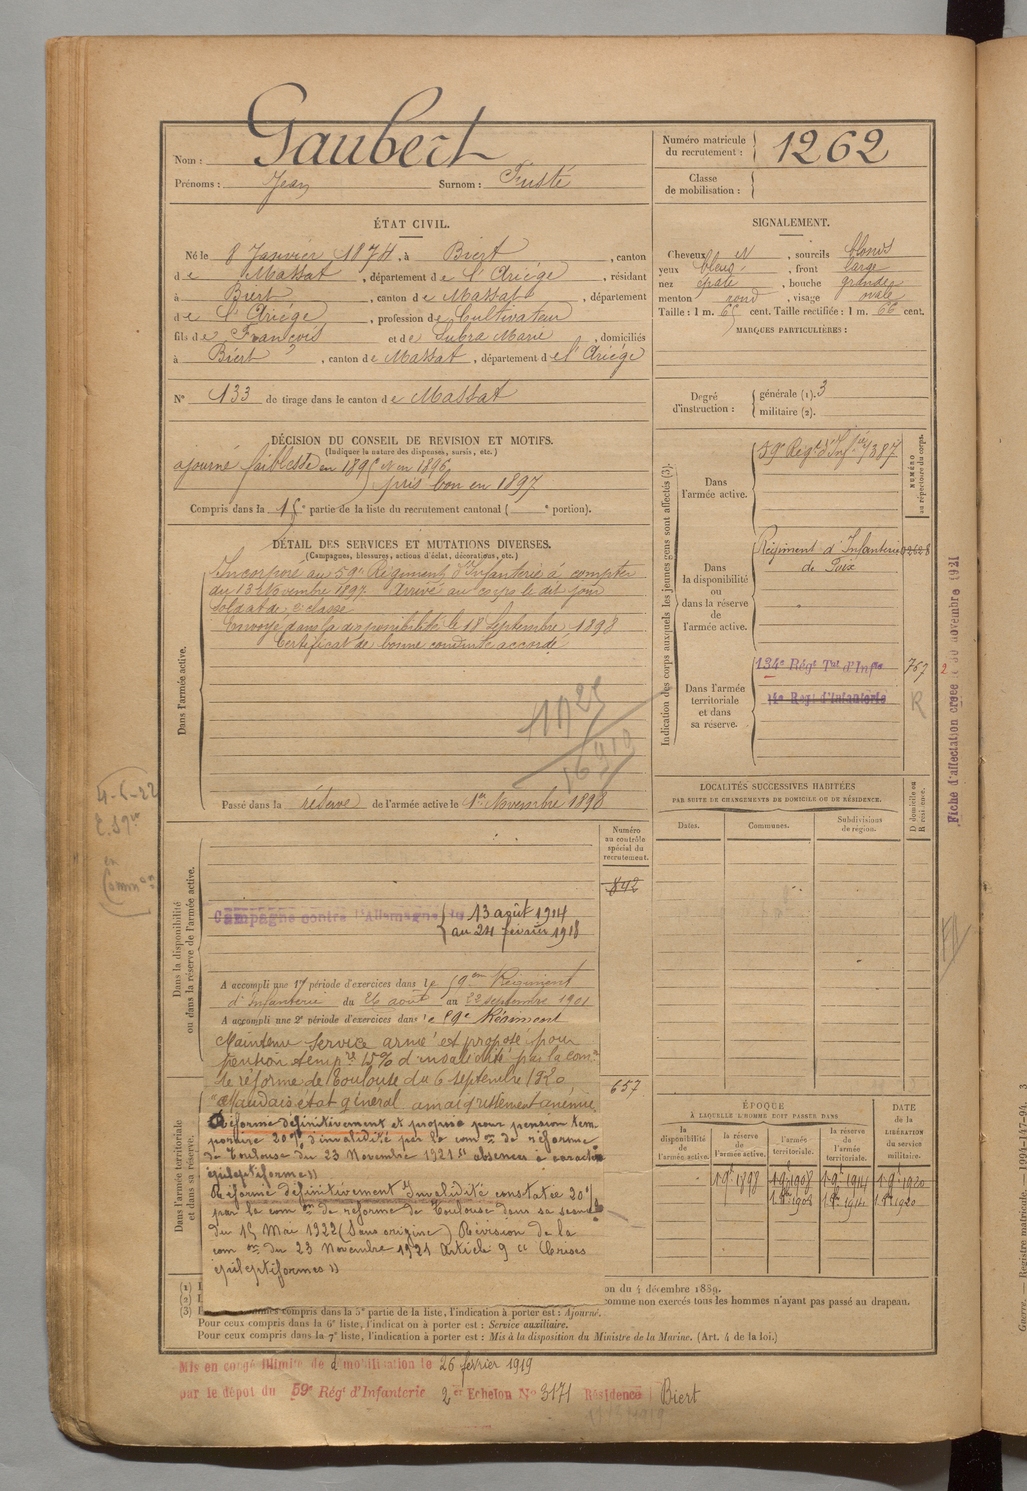 Nom : Gaubert
Prénoms : Jean Surnom : Fusté
Numéro matricule du recrutement : 1262
Classe de mobilisation :
ÉTAT CIVIL.
Né le 8 Janvier 1874, à Biert, canton
de Massat, département de l'Ariége, résidant
à Biert, canton de Massat, département
de l'Ariége, profession de Cultivateur
fils de François et de Subra Marie, domiciliés
à Biert, canton de Massat, département de l'Ariége
N° 133 de tirage dans le canton de Massat
SIGNALEMENT.
Cheveux et, sourcils blonds
yeux bleus, front large
nez épaté, bouche grande
menton rond, visage ovale
Taille : 1 m. 65 cent. Taille rectifiée : 1 m. 66 cent.
MARQUES PARTICULIÈRES :
Degré d'instruction : générale (1). 3
militaire (2).
DÉCISION DU CONSEIL DE REVISION ET MOTIFS.
(Indiquer la nature des dispenses, sursis, etc.)
ajourné faiblesse en 1895 et en 1896
pris bon en 1897
Compris dans la partie de la liste du recrutement cantonal ( e portion).
DÉTAIL DES SERVICES ET MUTATIONS DIVERSES.
(Campagnes, blessures, actions d'éclat, décorations, etc.)
Dans l'armée active.
Incorporé au 59e Régiment d'Infanterie à compter
du 13 Novembre 1897. Arrivé au corps le dit jour
soldat de 2e classe.
Envoyé dans la disponibilité le 18 Septembre 1898
Certificat de bonne conduite accordé
Passé dans la réserve de l'armée active le 1er Novembre 1898
Indication des corps auxquels les jeunes gens sont affectés (3).
NUMÉRO au répertoire du corps.
Dans l'armée active.
59e Régt d'Infie 7387
Dans la disponibilité ou dans la réserve de l'armée active.
Régiment d'Infanterie
de Foix
Dans l'armée territoriale et dans sa réserve.
134e Régt Tal d'Infie 767
14e Regt d'Infanterie
R
Fiche d'affectation créée le 30 novembre 1921
LOCALITÉS SUCCESSIVES HABITÉES
PAR SUITE DE CHANGEMENTS DE DOMICILE OU DE RÉSIDENCE.
Dates. Communes. Subdivisions de région. D domicile ou R résidence.
Dans la disponibilité ou dans la réserve de l'armée active.
Numéro au contrôle spécial du recrutement.
842
Campagne contre l'Allemagne du 13 août 1914
au 24 février 1918
A accompli une 1re période d'exercices dans le 59eme Régiment
d'Infanterie du 26 août au 22 septembre 1901
A accompli une 2e période d'exercices dans le 59e Régiment
Maintenu Service armé et proposé pour
pension tempre 15% d'invalidité par la comon
de réforme de Toulouse du 6 septembre 1920
"Mauvais état général amaigrissement anémie
657
Dans l'armée territoriale et dans sa réserve.
Réformé définitivement et proposé pour pension tem
poraire 20% d'invalidité par la comon de réforme
de Toulouse du 23 Novembre 1921 "absences à caractère
épileptiforme"
Réformé définitivement Invalidité constatée 20%
par la comon de réforme de Toulouse dans sa séance
du 15 Mai 1922 (Sans origine) Révision de la
comon du 23 Novembre 1921 Article 9 "Crises
épileptiformes"
ÉPOQUE
À LAQUELLE L'HOMME DOIT PASSER DANS
la disponibilité de l'armée active. la réserve de l'armée active. l'armée territoriale. la réserve de l'armée territoriale.
DATE de la LIBÉRATION du service militaire.
1 9bre 1898 1 9bre 1908 1 9bre 1914 1 9bre 1920
on du 4 décembre 1889.
comme non exercés tous les hommes n'ayant pas passé au drapeau.
compris dans la 5e partie de la liste, l'indication à porter est : Ajourné.
Pour ceux compris dans la 6e liste, l'indication à porter est : Service auxiliaire.
Pour ceux compris dans la 7e liste, l'indication à porter est : Mis à la disposition du Ministre de la Marine. (Art. 4 de la loi.)
Mis en congé illimité de démobilisation le 26 février 1919
par le dépôt du 59e Régt d'Infanterie 2e Echelon No 3171 Résidence Biert